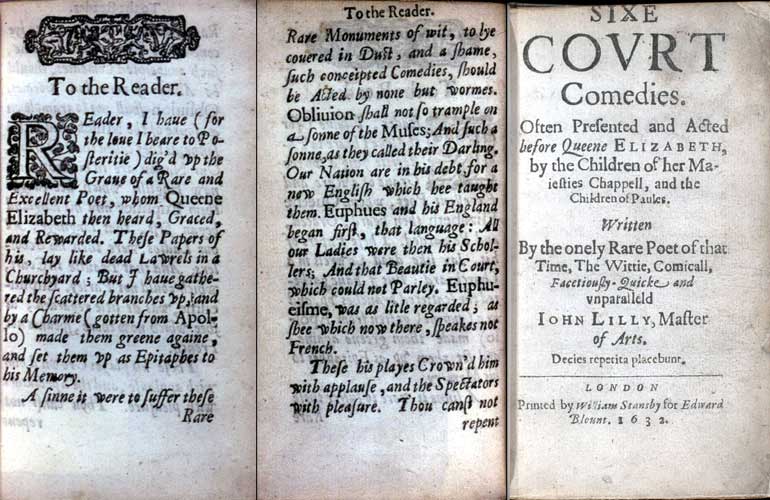 To the Reader.
REader, I haue (for
the loue I beare to Po-
steritie) dig'd vp the
Graue of a Rare and
Excellent Poet, whom Queene
Elizabeth then heard, Graced,
and Rewarded. These Papers of
his, lay like dead Lawrels in a
Churchyard; But I haue gathe-
red the scattered branches vp, and
by a Charme (gotten from Apol-
lo) made them greene againe,
and set them vp as Epitaphes to
his Memory.
A sinne it were to suffer these
Rare
To the Reader.
Rare Monuments of wit, to lye
couered in Dust, and a shame,
such conceipted Comedies, should
be Acted by none but wormes.
Obliuion shall not so trample on
a sonne of the Muses; And such a
sonne, as they called their Darling.
Our Nation are in his debt for a
new English which hee taught
them. Euphues and his England
began first, that language: All
our Ladies were then his Schol-
lers; And that Beautie in Court,
which could not Parley. Euphu-
eisme, was as litle regarded; as
shee which now there, speakes not
French.
These his playes Crown'd him
with applause, and the Spectators
with pleasure. Thou canst not
repent
SIXE
COVRT
Comedies.
Often Presented and Acted
before Queene ELIZABETH,
by the Children of her Ma-
iesties Chappell, and the
Children of Paules.
Written
By the onely Rare Poet of that
Time, The Wittie, Comicall,
Facetiously-Quicke and
vnparalleld
IOHN LILLY, Master
of Arts.
Decies repetita placebunt.
LONDON
Printed by William Stansby for Edward
Blount. 1632.